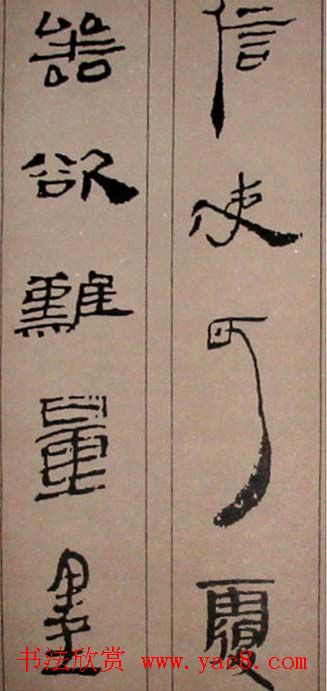 信使可覆
器欲難量墨
书法欣赏 www.yac8.com